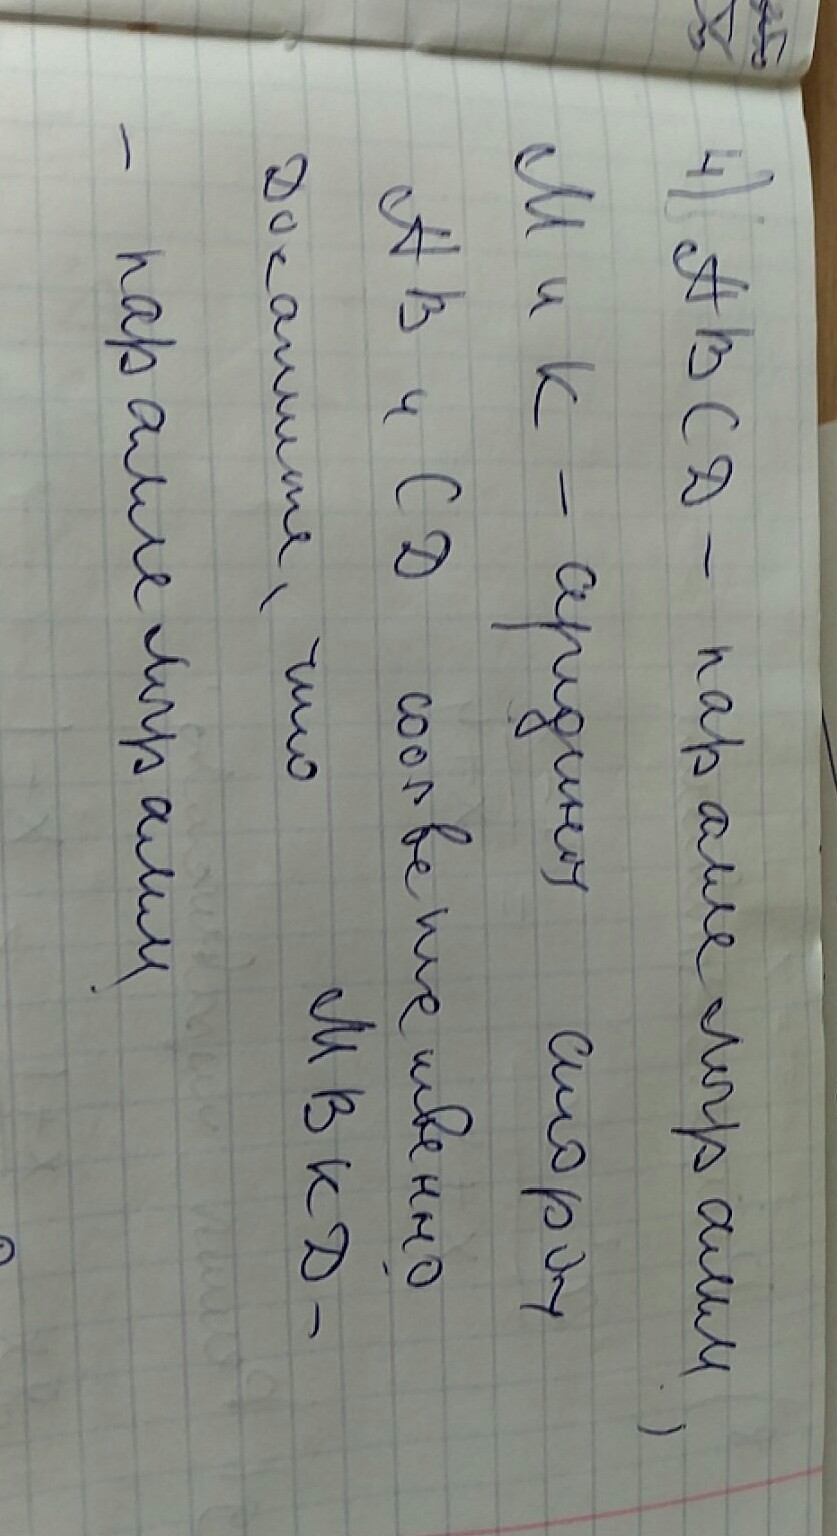 4) ABCD - параллелограмм,
M и K - середины сторон
AB и CD соответственно
Докажите, что MBKD -
- параллелограмм